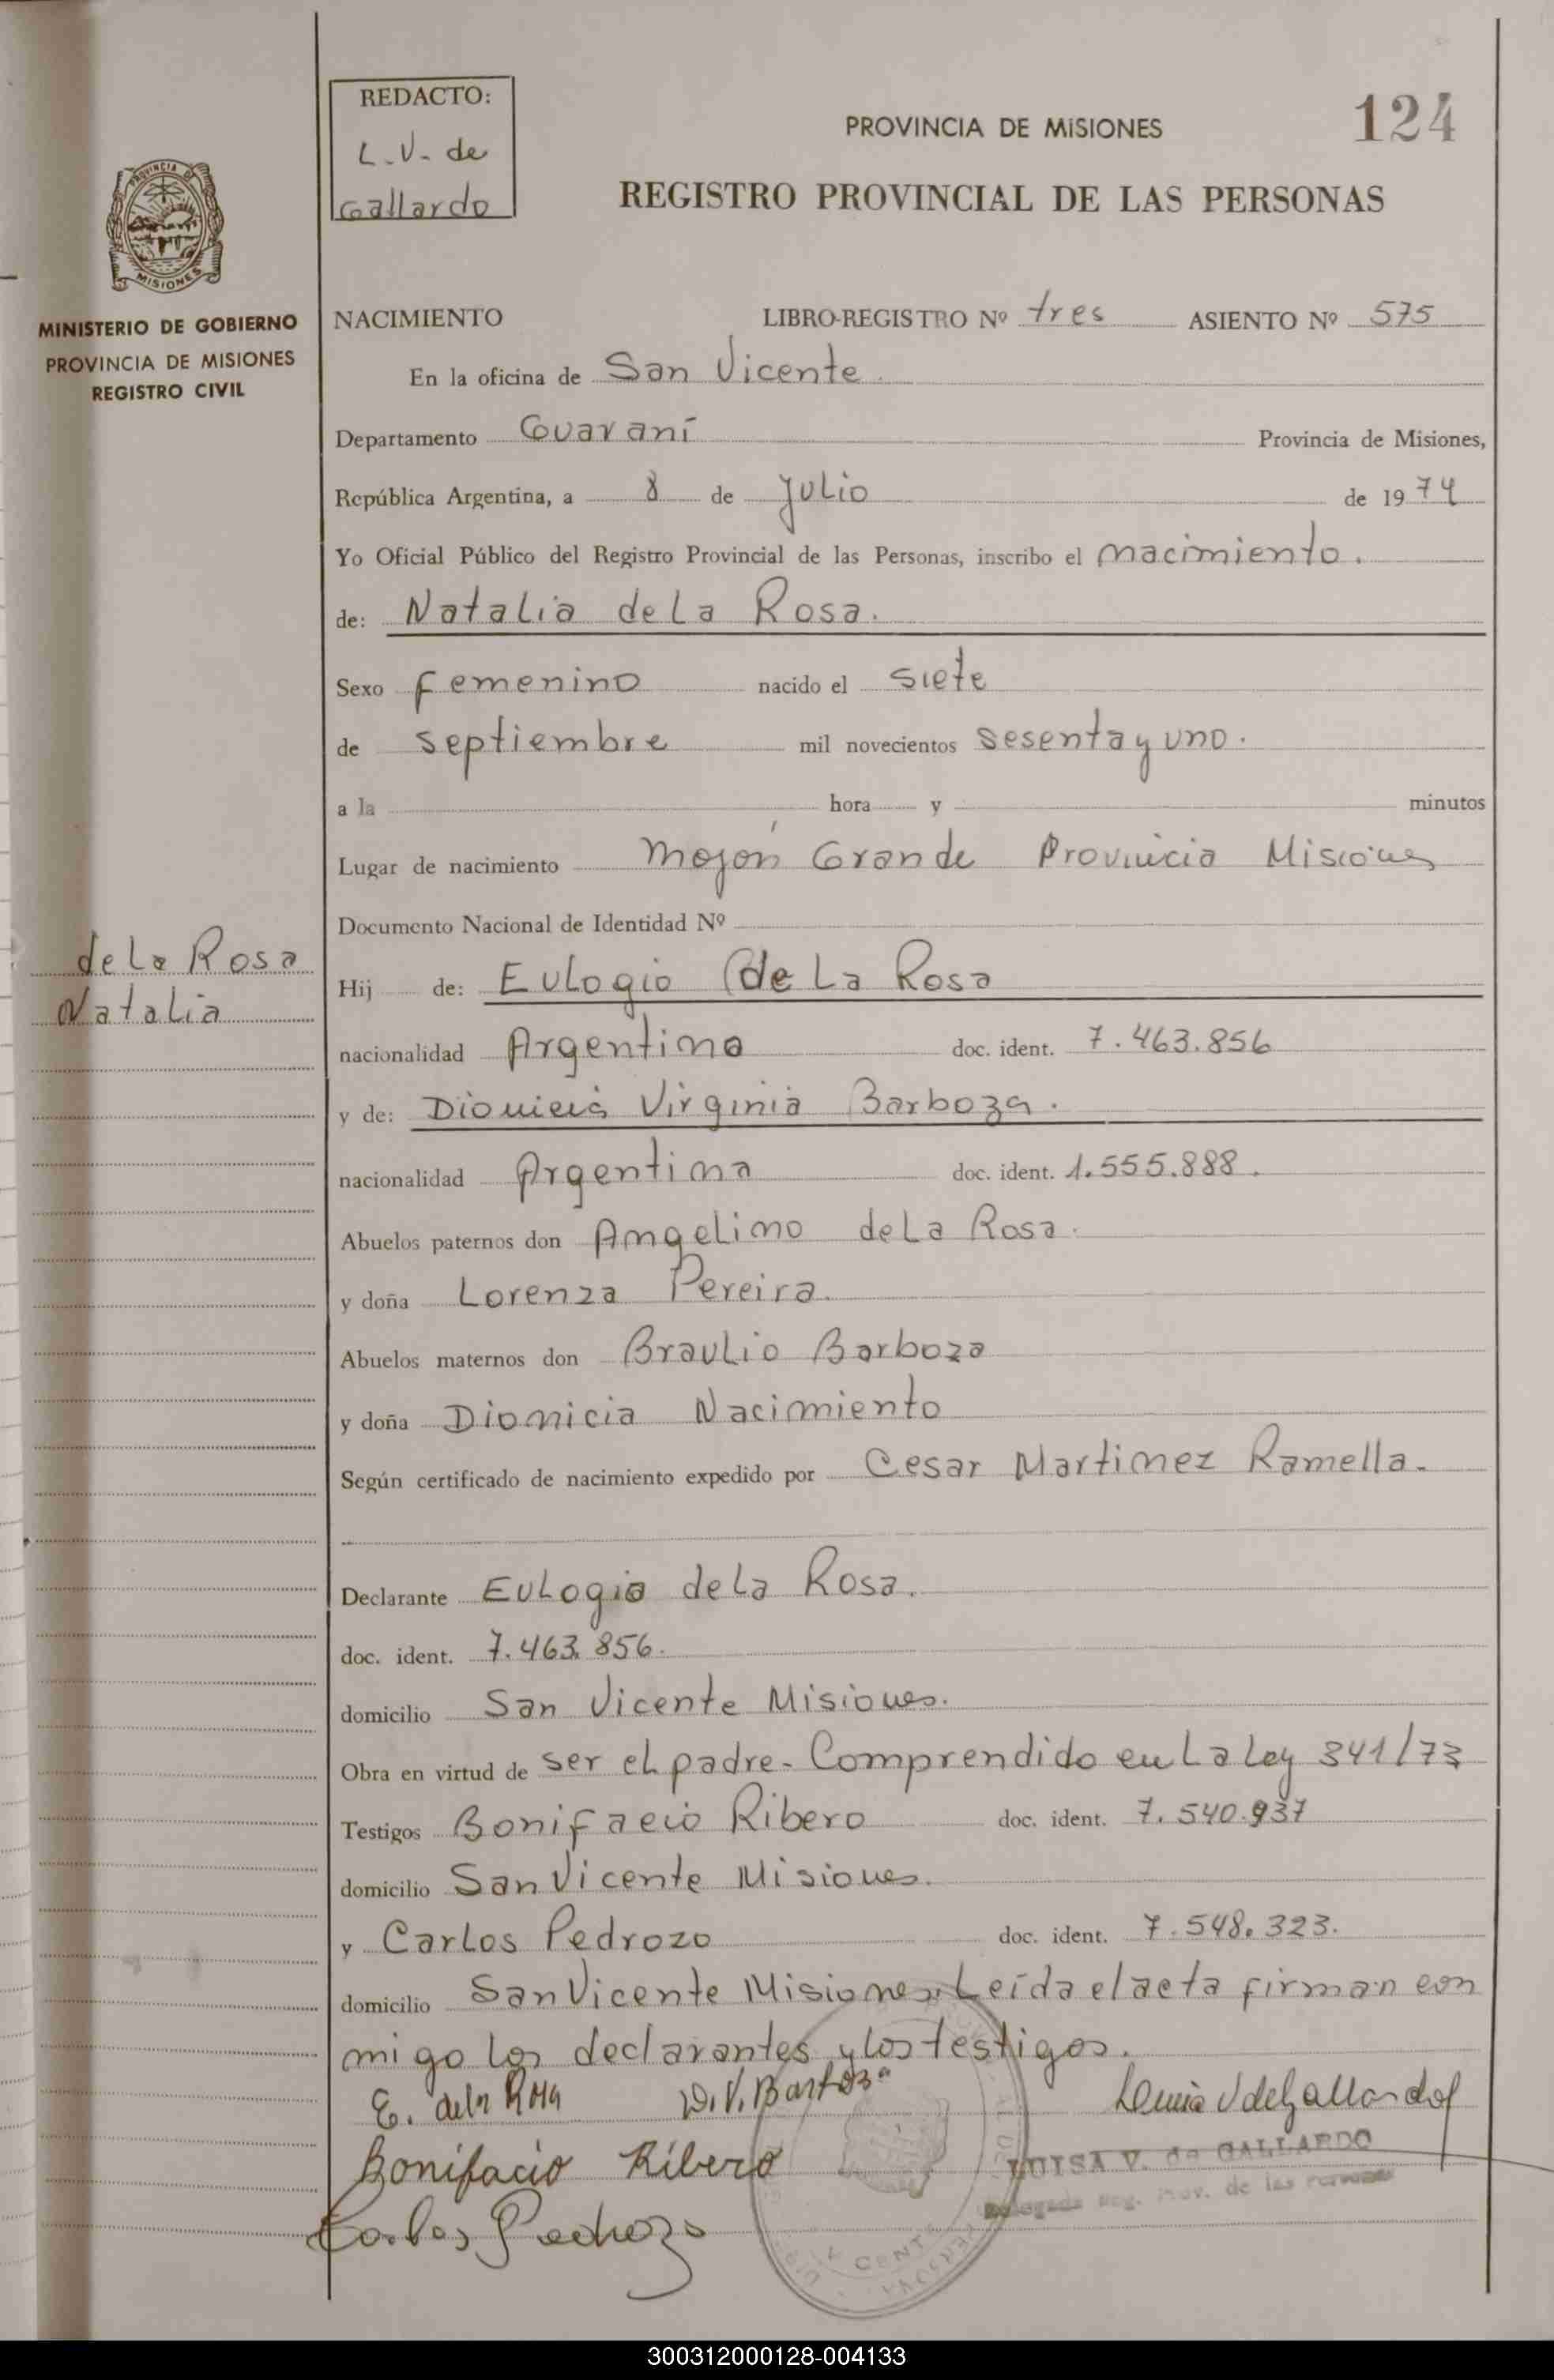 REDACTO:
L.V. de
Gallardo
PROVINCIA DE MISIONES
124
REGISTRO PROVINCIAL DE LAS PERSONAS
PROVINCIA DE
MISIONES
MINISTERIO DE GOBIERNO
PROVINCIA DE MISIONES
REGISTRO CIVIL
NACIMIENTO LIBRO-REGISTRO Nº tres ASIENTO Nº 575
En la oficina de San Vicente.
Departamento Guaraní Provincia de Misiones,
República Argentina, a 8 de Julio de 1974
Yo Oficial Público del Registro Provincial de las Personas, inscribo el nacimiento.
de: Natalia de La Rosa.
Sexo Femenino nacido el siete
de septiembre mil novecientos sesenta y uno.
a la hora y minutos
Lugar de nacimiento Mojón Grande Provincia Misiones
Documento Nacional de Identidad Nº
de La Rosa
Natalia
Hij de: Eulogio de La Rosa
nacionalidad Argentina doc. ident. 7.463.856
y de: Dionicia Virginia Barboza.
nacionalidad Argentina doc. ident. 1.555.888.
Abuelos paternos don Angelino de La Rosa.
y doña Lorenza Pereira.
Abuelos maternos don Braulio Barboza
y doña Dionicia Nacimiento
Según certificado de nacimiento expedido por Cesar Martinez Ramella.
Declarante Eulogio de La Rosa.
doc. ident. 7.463.856.
domicilio San Vicente Misiones.
Obra en virtud de ser el padre - Comprendido en La Ley 341/73
Testigos Bonifacio Ribero doc. ident. 7.540.937
domicilio San Vicente Misiones.
y Carlos Pedrozo doc. ident. 7.548.323.
domicilio San Vicente Misiones. Leída el acta firman con
migo los declarantes y los testigos.
E. de la Rosa D.V. Barboza Luisa V de Gallardo
Bonifacio Ribero
LUISA V. de GALLARDO
Delegada Reg. Prov. de las Personas
Carlos Pedrozo
300312000128-004133